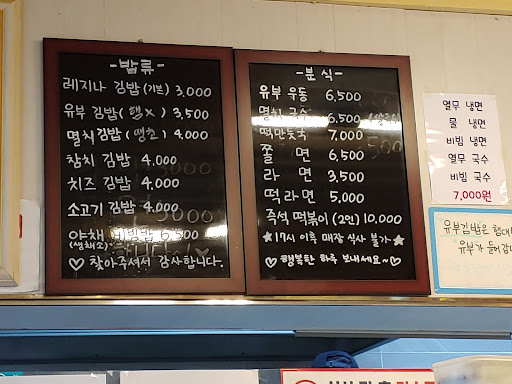 -밥류-
레지나 김밥(기본) 3,000
유부 김밥(햄X) 3,500
멸치김밥(땡초) 4,000
참치 김밥 4,000
치즈 김밥 4,000
소고기 김밥 4,000
야채 비빔밥 6,500
(생채소)
♡ 찾아주셔서 감사합니다.
-분식-
유부 우동 6,500
멸치 국수 6,500
떡만둣국 7,000
쫄 면 6,500
라 면 3,500
떡라면 5,000
즉석 떡볶이 (2인) 10,000
★17시 이후 매장 식사 불가★
♡ 행복한 하루 보내세요~♡
열무 냉면
물 냉면
비빔 냉면
열무 국수
비빔 국수
7,000원
유부김밥은 햄대
유부가 들어갑